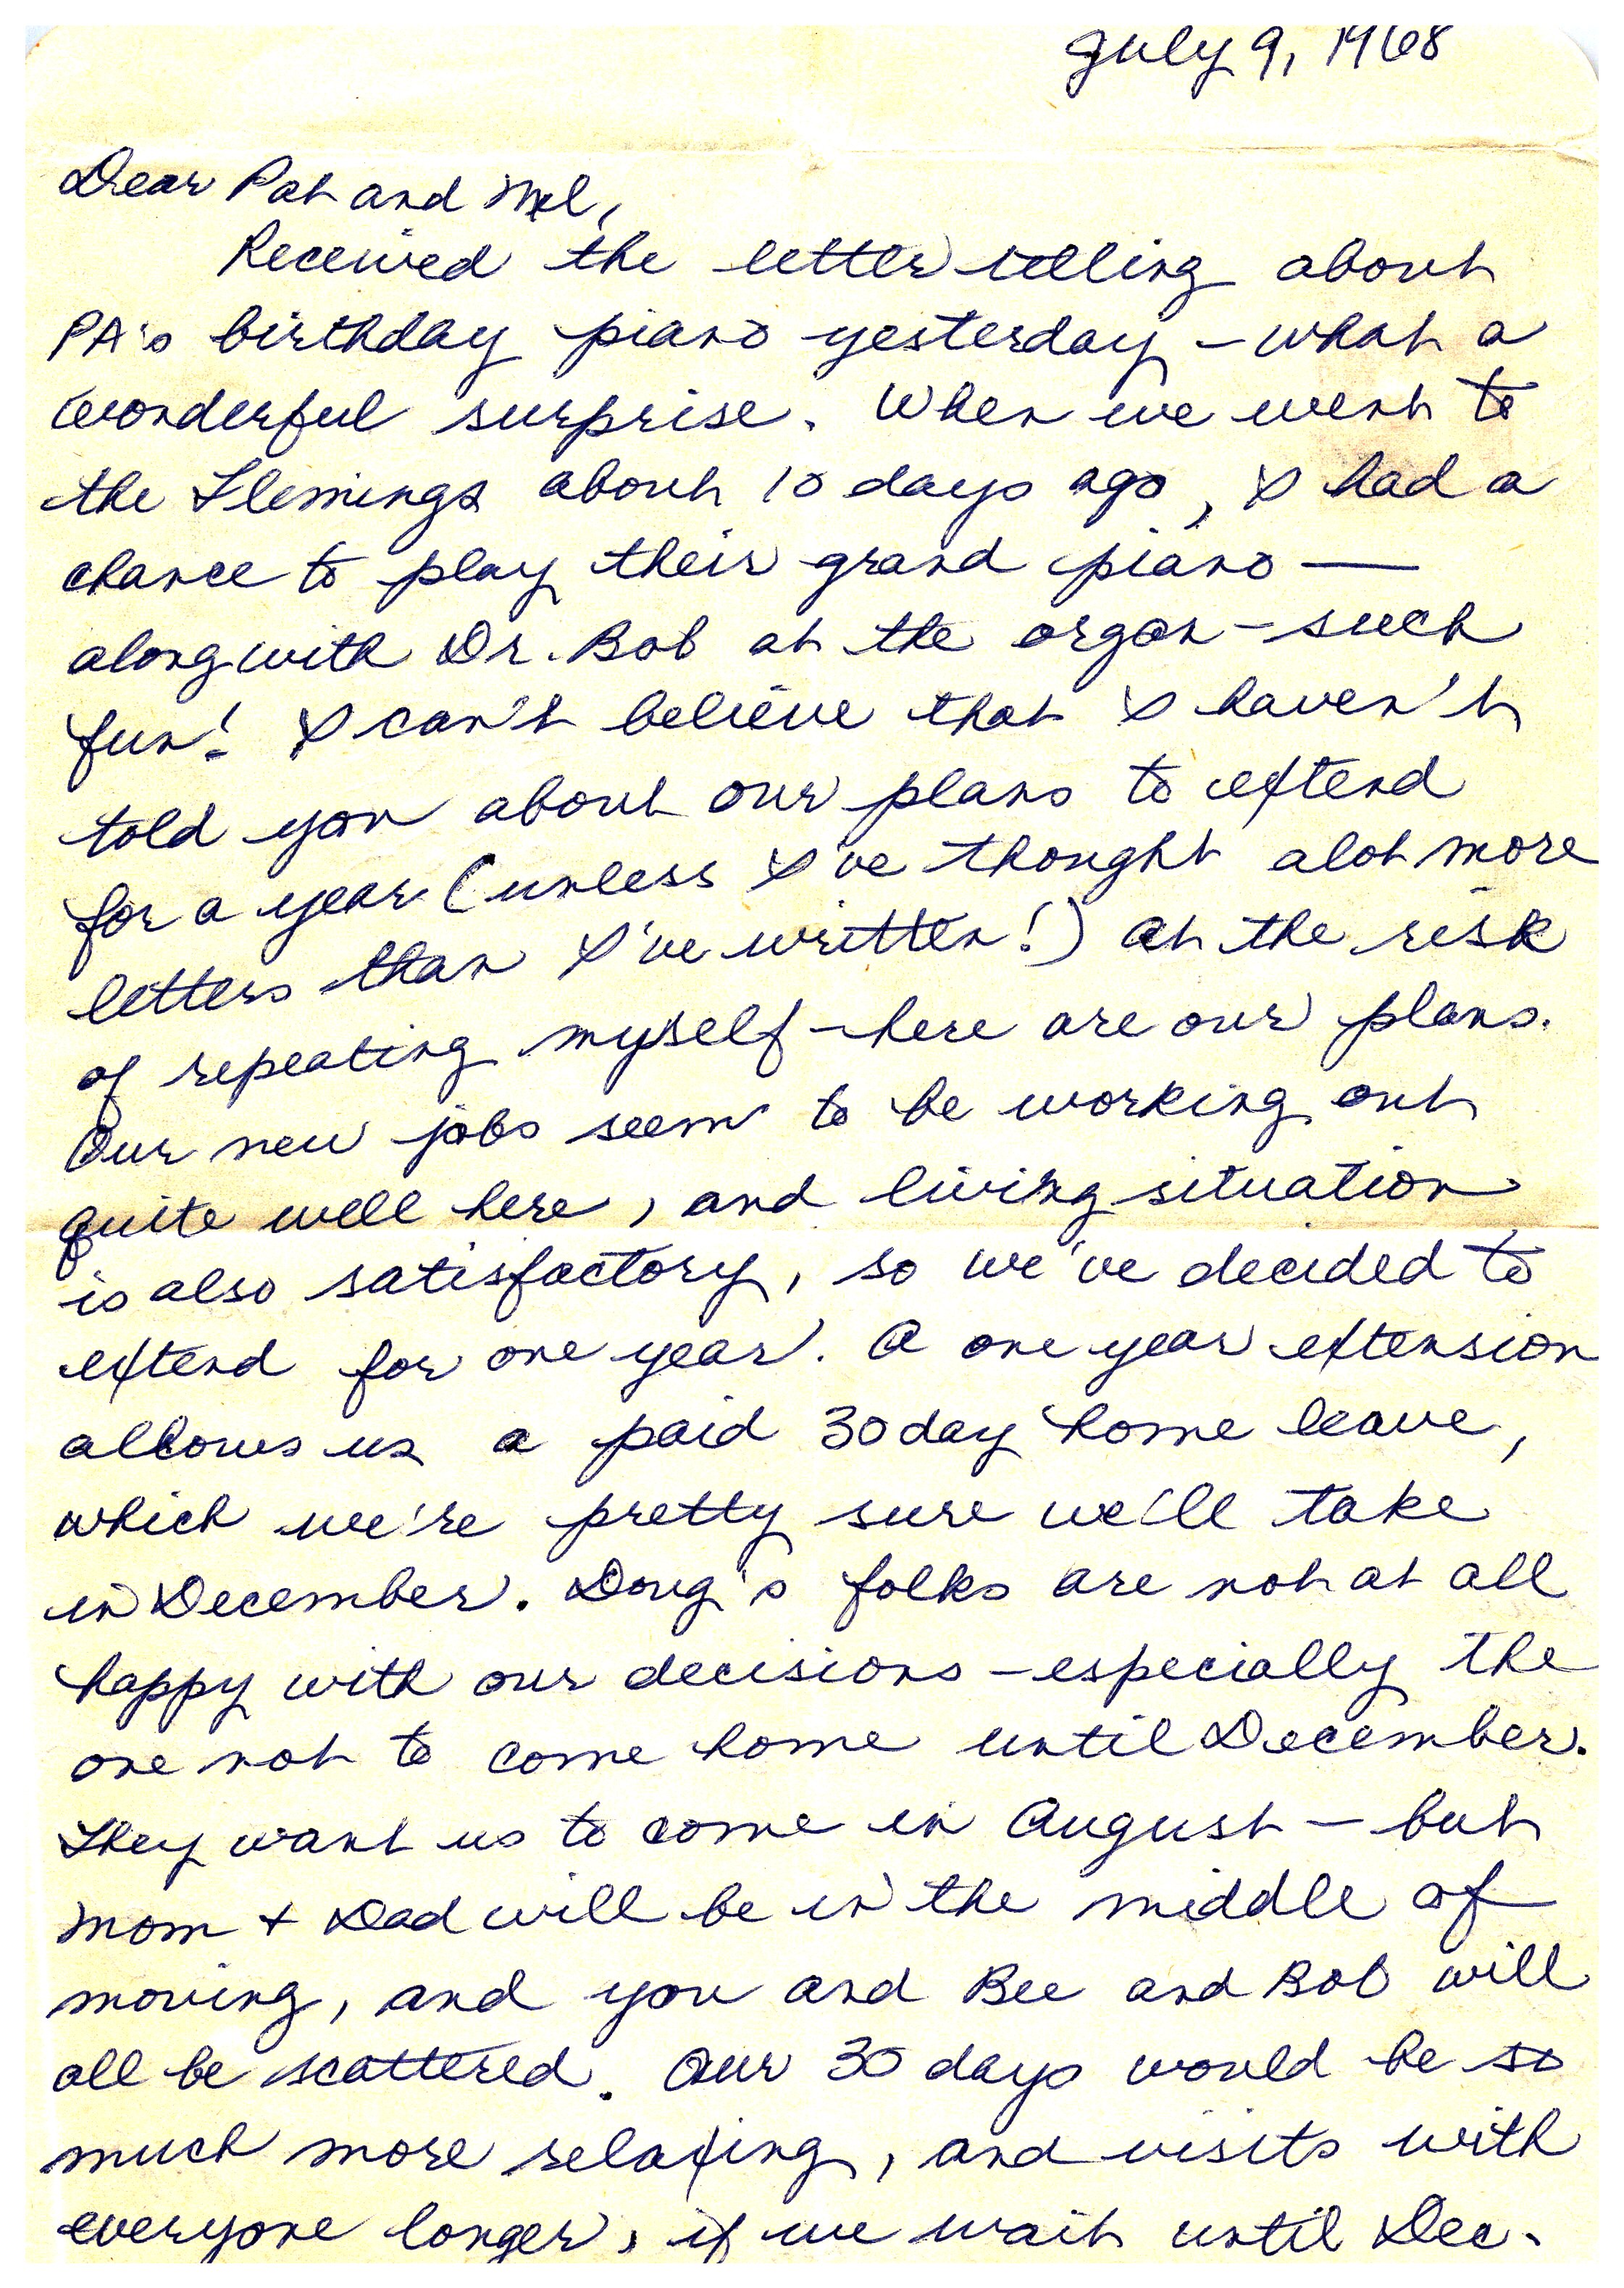 July 9, 1968
Dear Pat and Mel,
Received the letter telling about
PA's birthday piano yesterday - what a
wonderful surprise. When we went to
the Flemings about 10 days ago, I had a
chance to play their grand piano —
along with Dr. Bob at the organ - such
fun! I can't believe that I haven't
told you about our plans to extend
for a year (unless I've thought alot more
letters than I've written!) At the risk
of repeating myself - here are our plans.
Our new jobs seem to be working out
quite well here, and living situation
is also satisfactory, so we've decided to
extend for one year. A one year extension
allows us a paid 30 day home leave,
which we're pretty sure we'll take
in December. Doug's folks are not at all
happy with our decisions - especially the
one not to come home until December.
They want us to come in August - but
Mom + Dad will be in the middle of
moving, and you and Bee and Bob will
all be scattered. Our 30 days would be so
much more relaxing, and visits with
everyone longer, if we wait until Dec.